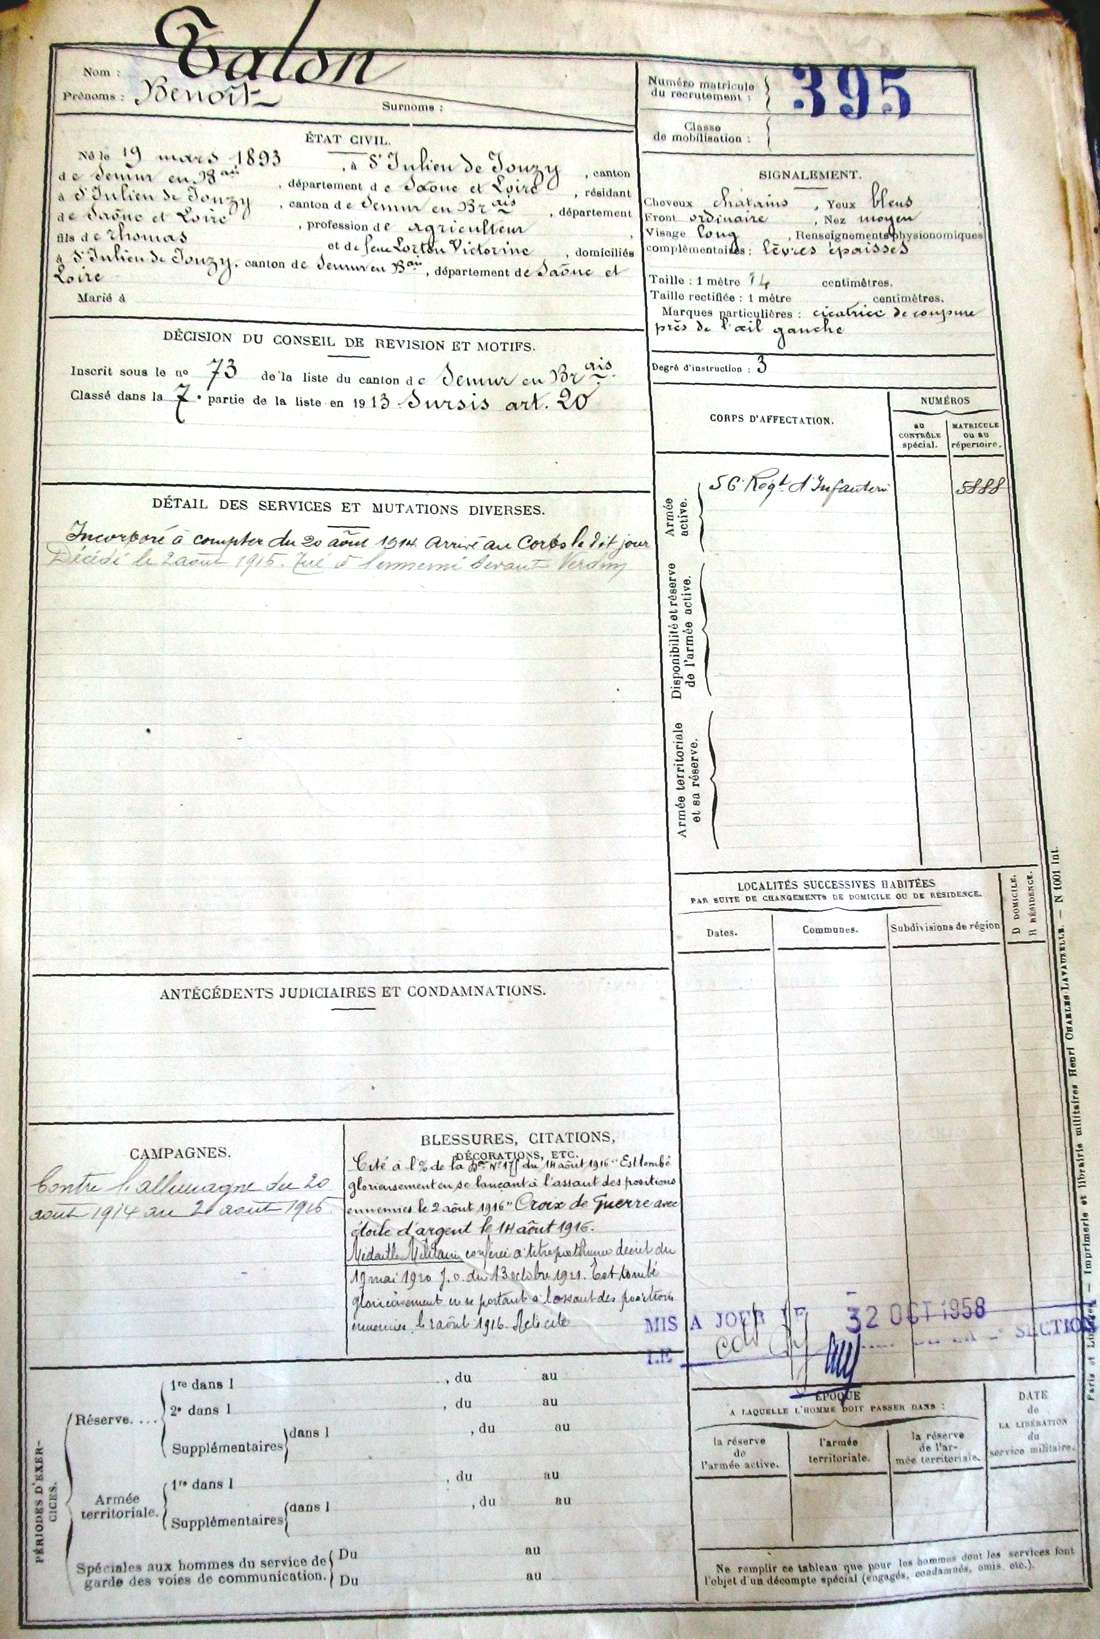 Nom : Talon
Prénoms : Benoît Surnoms :
Numéro matricule
du recrutement : 395
Classe
de mobilisation :
ÉTAT CIVIL.
Né le 19 mars 1893, à St Julien de Jonzy, canton
de Semur en Bais, département de Saône et Loire, résidant
à St Julien de Jonzy, canton de Semur en Brais, département
de Saône et Loire, profession de agriculteur,
fils de Thomas et de feue Lorton Victorine, domiciliés
à St Julien de Jonzy, canton de Semur en Bais, département de Saône et
Loire
Marié à
SIGNALEMENT.
Cheveux chatains, Yeux bleus
Front ordinaire, Nez moyen
Visage long, Renseignements physionomiques
complémentaires : lèvres épaisses
Taille : 1 mètre 74 centimètres.
Taille rectifiée : 1 mètre centimètres.
Marques particulières : cicatrice de coupure
près de l'œil gauche
Degré d'instruction : 3
DÉCISION DU CONSEIL DE REVISION ET MOTIFS.
Inscrit sous le no 73 de la liste du canton de Semur en Brais.
Classé dans la 7e partie de la liste en 1913 Sursis art. 20
CORPS D'AFFECTATION.
NUMÉROS
AU
CONTRÔLE
spécial.
MATRICULE
OU AU
répertoire.
Armée
active.
56e Regt d'Infanterie 5888
Disponibilité et réserve
de l'armée active.
Armée territoriale
et sa réserve.
DÉTAIL DES SERVICES ET MUTATIONS DIVERSES.
Incorporé à compter du 20 août 1914 Arrivé au Corps le dit jour
Décédé le 2 août 1916. Tué à l'ennemi devant Verdun
LOCALITÉS SUCCESSIVES HABITÉES
PAR SUITE DE CHANGEMENTS DE DOMICILE OU DE RÉSIDENCE.
Dates.
Communes.
Subdivisions de région
D DOMICILE.
R RÉSIDENCE.
ANTÉCÉDENTS JUDICIAIRES ET CONDAMNATIONS.
CAMPAGNES.
Contre l'allemagne du 20
août 1914 au 2 août 1916
BLESSURES, CITATIONS,
DÉCORATIONS, ETC.
Cité à l'% de la Don No 175 du 14 août 1916 "Est tombé
glorieusement en se lançant à l'assaut des positions
ennemies le 2 août 1916" Croix de Guerre avec
étoile d'argent le 14 août 1916.
Médaille Militaire conférée à titre posthume décret du
19 mai 1920 J.O. du 13 octobre 1921. Est tombé
glorieusement en se portant à l'assaut des positions
ennemies le 2 août 1916. A été cité
MIS A JOUR LE 2 OCT 1958
LE
SECTION
PÉRIODES D'EXER-
CICES.
Réserve....
1re dans l , du au
2e dans l , du au
Supplémentaires dans l , du au
Armée
territoriale.
1re dans l , du au
Supplémentaires dans l , du au
Spéciales aux hommes du service de
garde des voies de communication.
Du au
Du au
ÉPOQUE
A LAQUELLE L'HOMME DOIT PASSER DANS :
la réserve
de
l'armée active.
l'armée
territoriale.
la réserve
de l'ar-
mée territoriale.
DATE
de
LA LIBÉRATION
du
service militaire.
Ne remplir ce tableau que pour les hommes dont les services font
l'objet d'un décompte spécial (engagés, condamnés, omis, etc.).
Paris et Limoges. — Imprimerie et librairie militaires Henri CHARLES-LAVAUZELLE. — N 1001 Int.